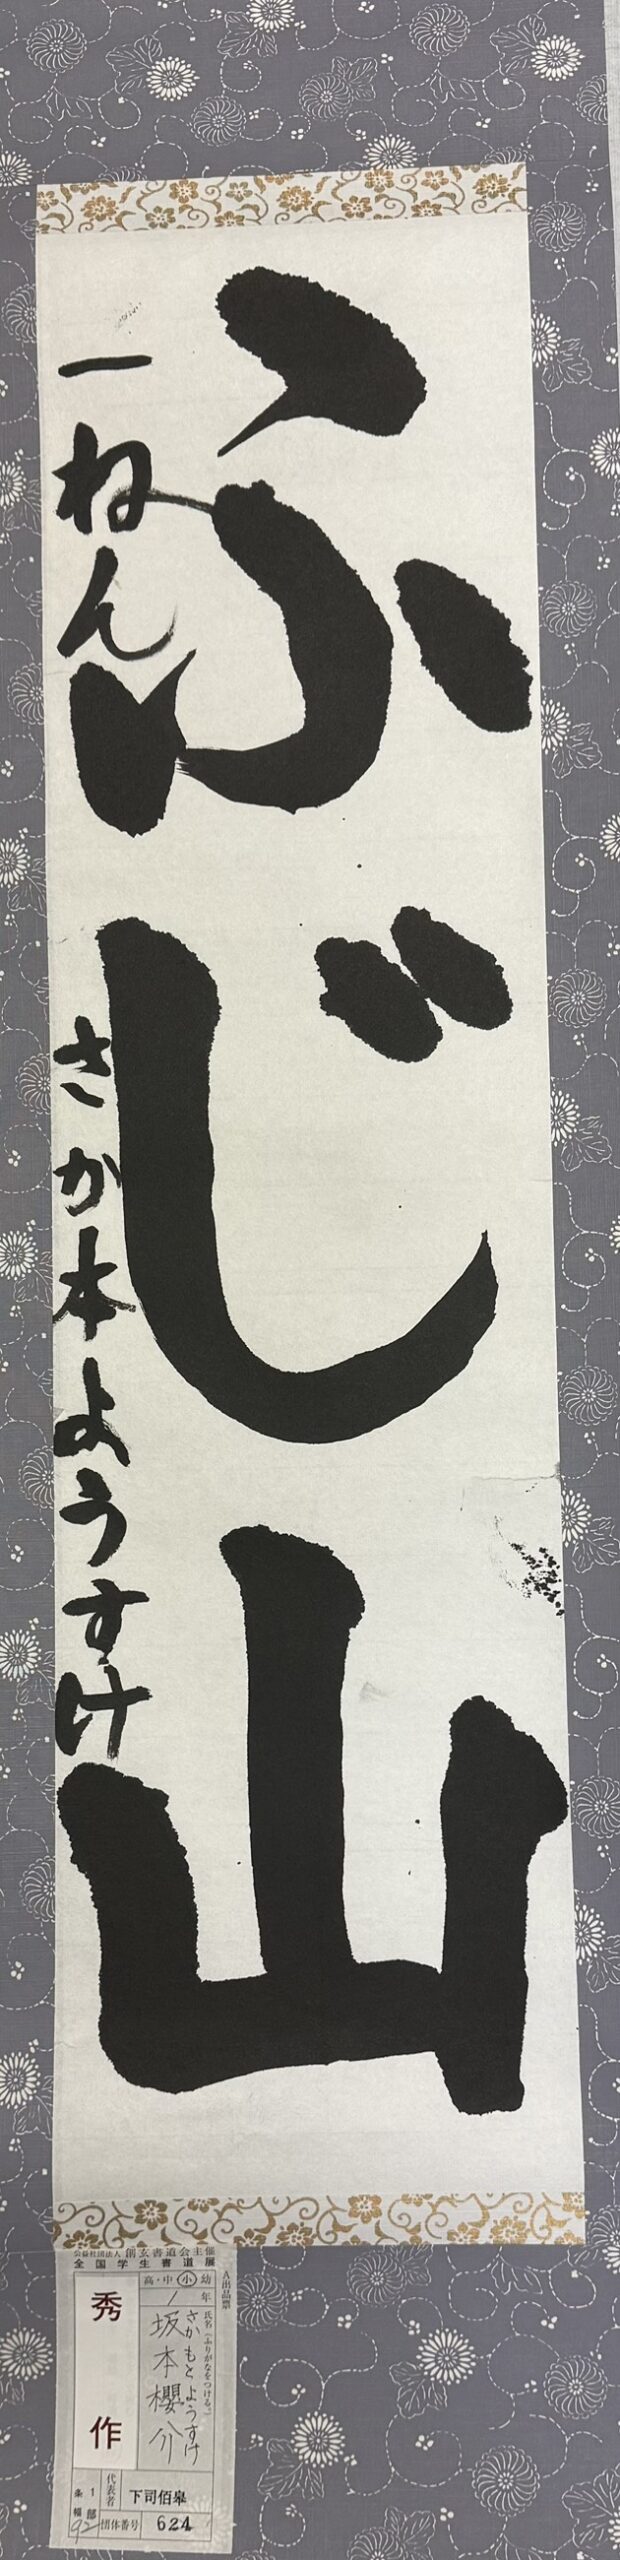 ふじ山
一ねん さか本ようすけ
公益社団法人 創玄書道会主催
全国学生書道展
A出品票
秀作
高・中・小・幼
1年
氏名(ふりがなをつける。)
さかもと ようすけ
坂本櫻介
代表者 下司佰皐
1部
条幅
92
団体番号 624